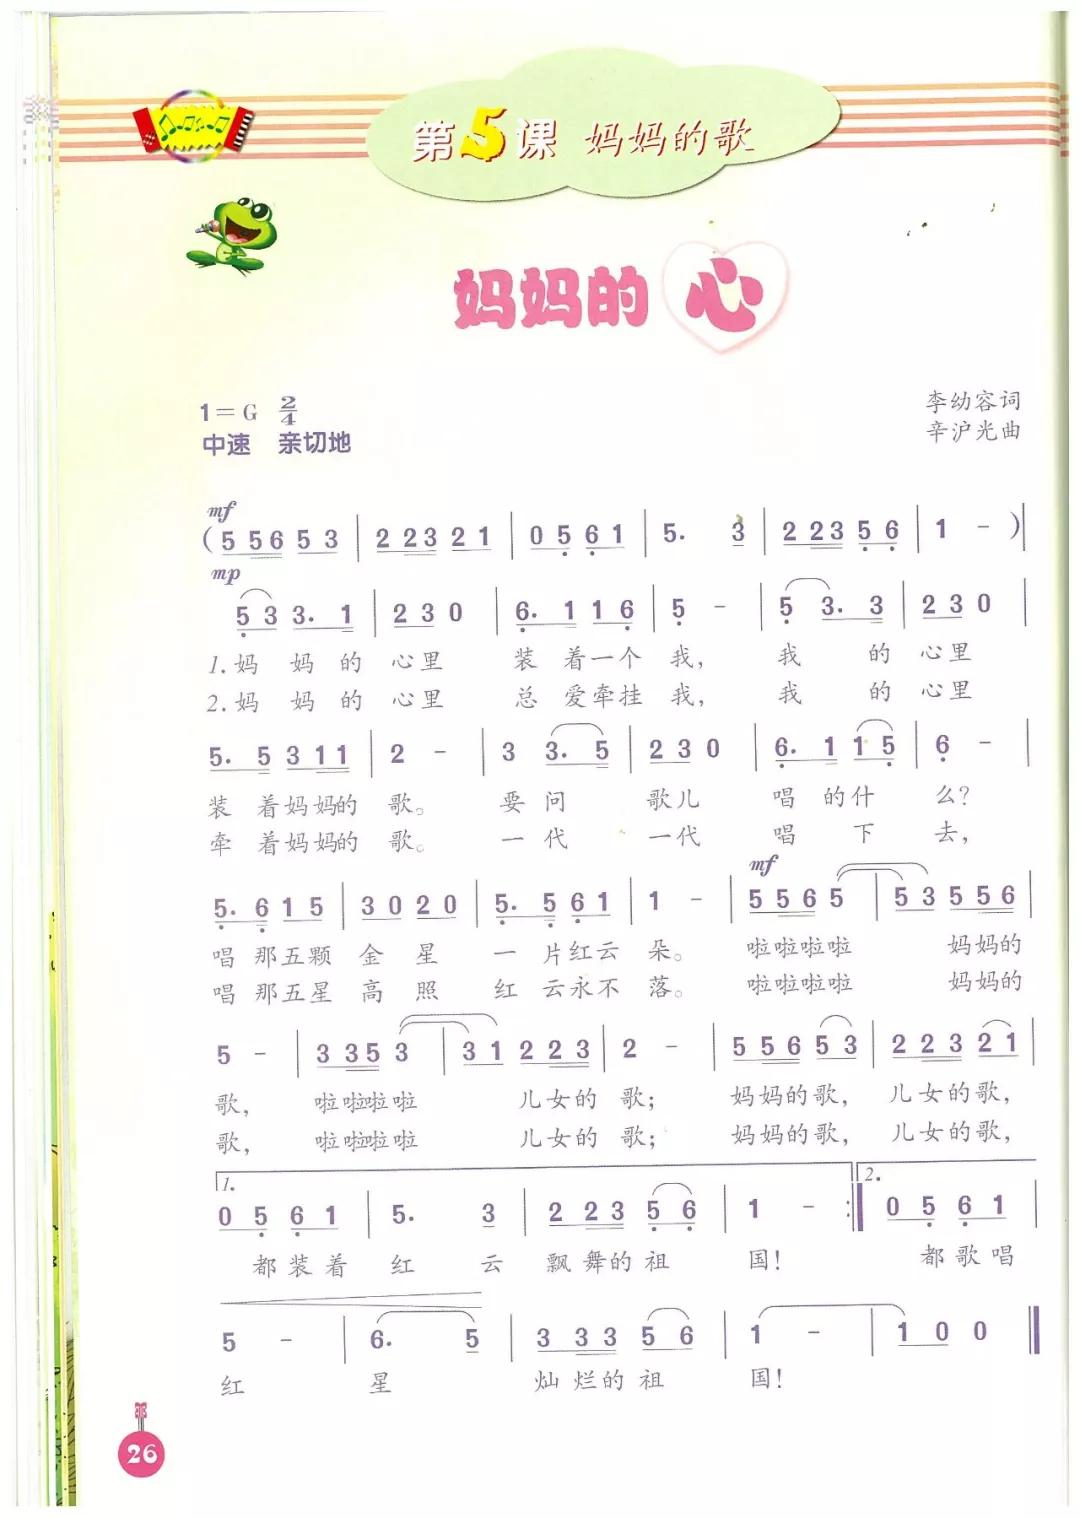 第5课 妈妈的歌
妈妈的心
1=G 2/4
李幼容词
中速 亲切地
辛沪光曲
mf
(5 5 6 5 3 | 2 2 3 2 1 | 0 5 6 1 | 5. 3 | 2 2 3 5 6 | 1 - )|
mp
5 3 3. 1 | 2 3 0 | 6. 1 1 6 | 5 - | 5 3. 3 | 2 3 0 |
1.妈 妈 的 心里 装 着一个 我, 我 的 心里
2.妈 妈 的 心里 总 爱牵挂 我, 我 的 心里
5. 5 3 1 1 | 2 - | 3 3. 5 | 2 3 0 | 6. 1 1 5 | 6 - |
装 着妈妈的 歌。 要 问 歌儿 唱 的什 么?
牵 着妈妈的 歌。 一 代 一代 唱 下 去,
mf
5. 6 1 5 | 3 0 2 0 | 5. 5 6 1 | 1 - | 5 5 6 5 | 5 3 5 5 6 |
唱 那五颗 金 星 一 片红云 朵。 啦啦啦啦 妈妈的
唱 那五星 高 照 红 云永不 落。 啦啦啦啦 妈妈的
5 - | 3 3 5 3 | 3 1 2 2 3 | 2 - | 5 5 6 5 3 | 2 2 3 2 1 |
歌, 啦啦啦啦 儿女的 歌; 妈妈的歌, 儿女的歌,
歌, 啦啦啦啦 儿女的 歌; 妈妈的歌, 儿女的歌,
1. 2.
0 5 6 1 | 5. 3 | 2 2 3 5 6 | 1 - :|| 0 5 6 1 |
都装着 红 云 飘舞的祖 国! 都歌唱
5 - | 6. 5 | 3 3 3 5 6 | 1 - | 1 0 0 ||
红 星 灿烂的祖 国!
26